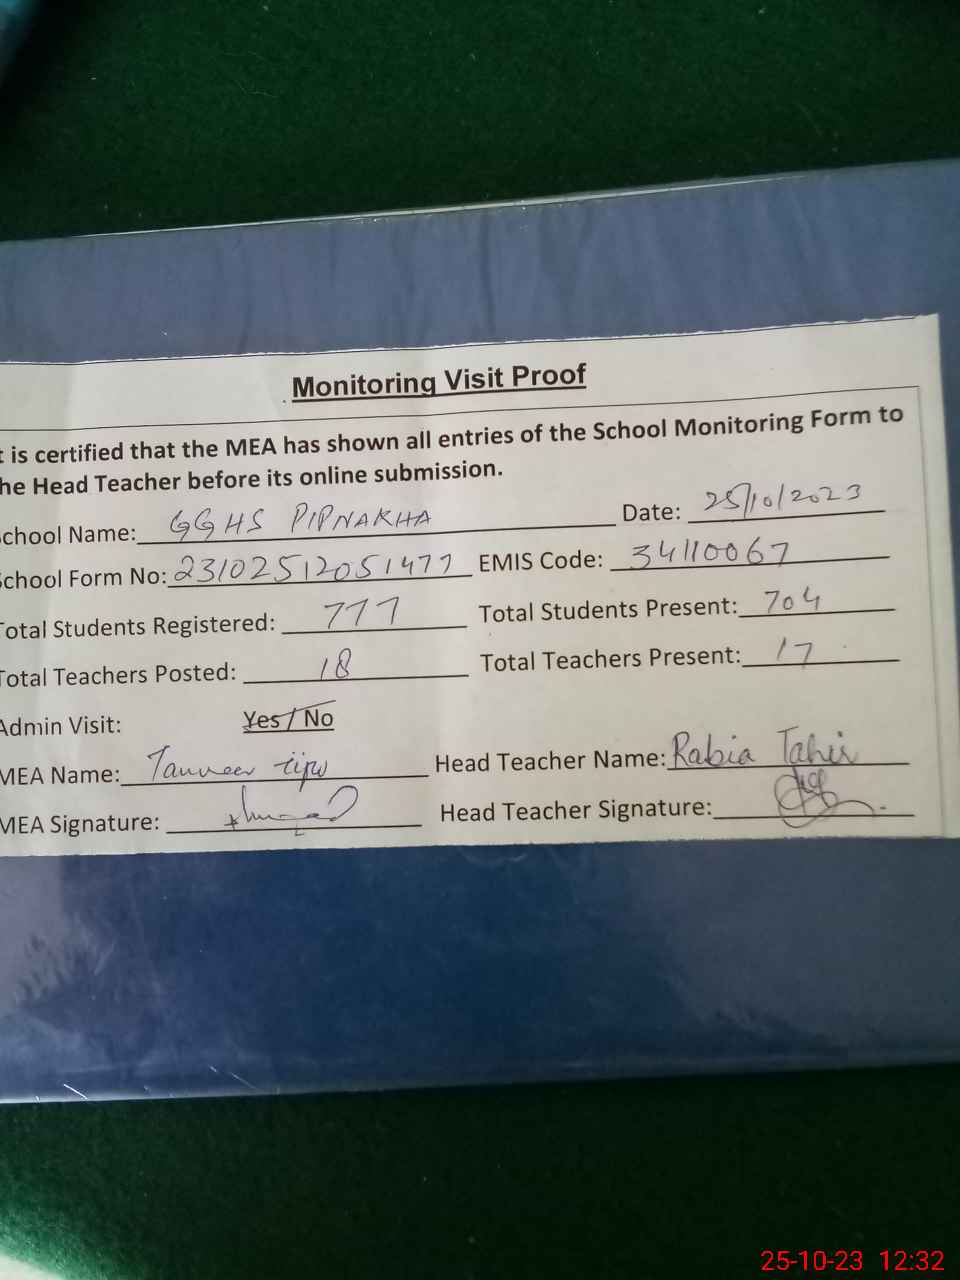 Monitoring Visit Proof
t is certified that the MEA has shown all entries of the School Monitoring Form to
he Head Teacher before its online submission.
chool Name: GGHS PIPNAKHA Date: 25/10/2023
School Form No: 23102512051477 EMIS Code: 34110067
Total Students Registered: 777 Total Students Present: 704
Total Teachers Posted: 18 Total Teachers Present: 17
Admin Visit: Yes / No
MEA Name: Tanveer tipu Head Teacher Name: Rabia Tahir
MEA Signature: Head Teacher Signature:
25-10-23 12:32